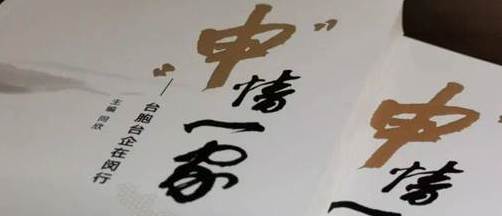 “申”情一家
——台胞台企在闵行
主编
申情一